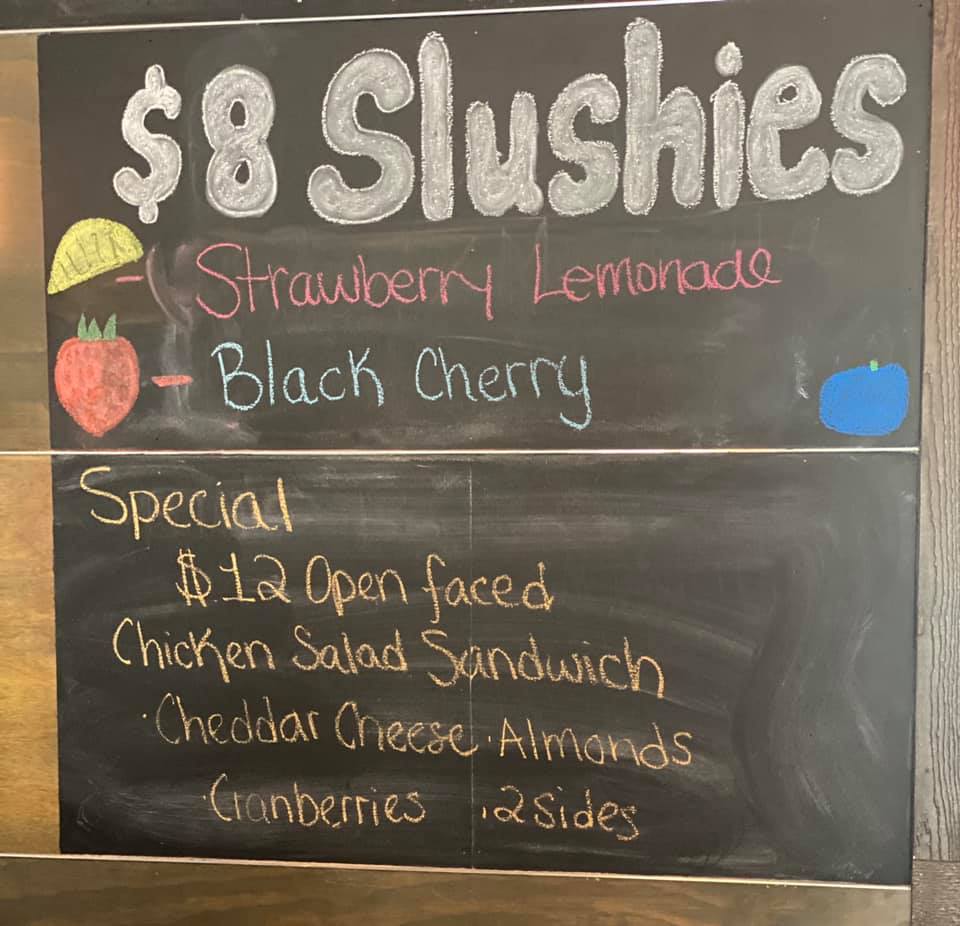 $8 Slushies
- Strawberry Lemonade
- Black Cherry
Special
$12 Open faced
Chicken Salad Sandwich
· Cheddar Cheese · Almonds
· Cranberries · 2 Sides